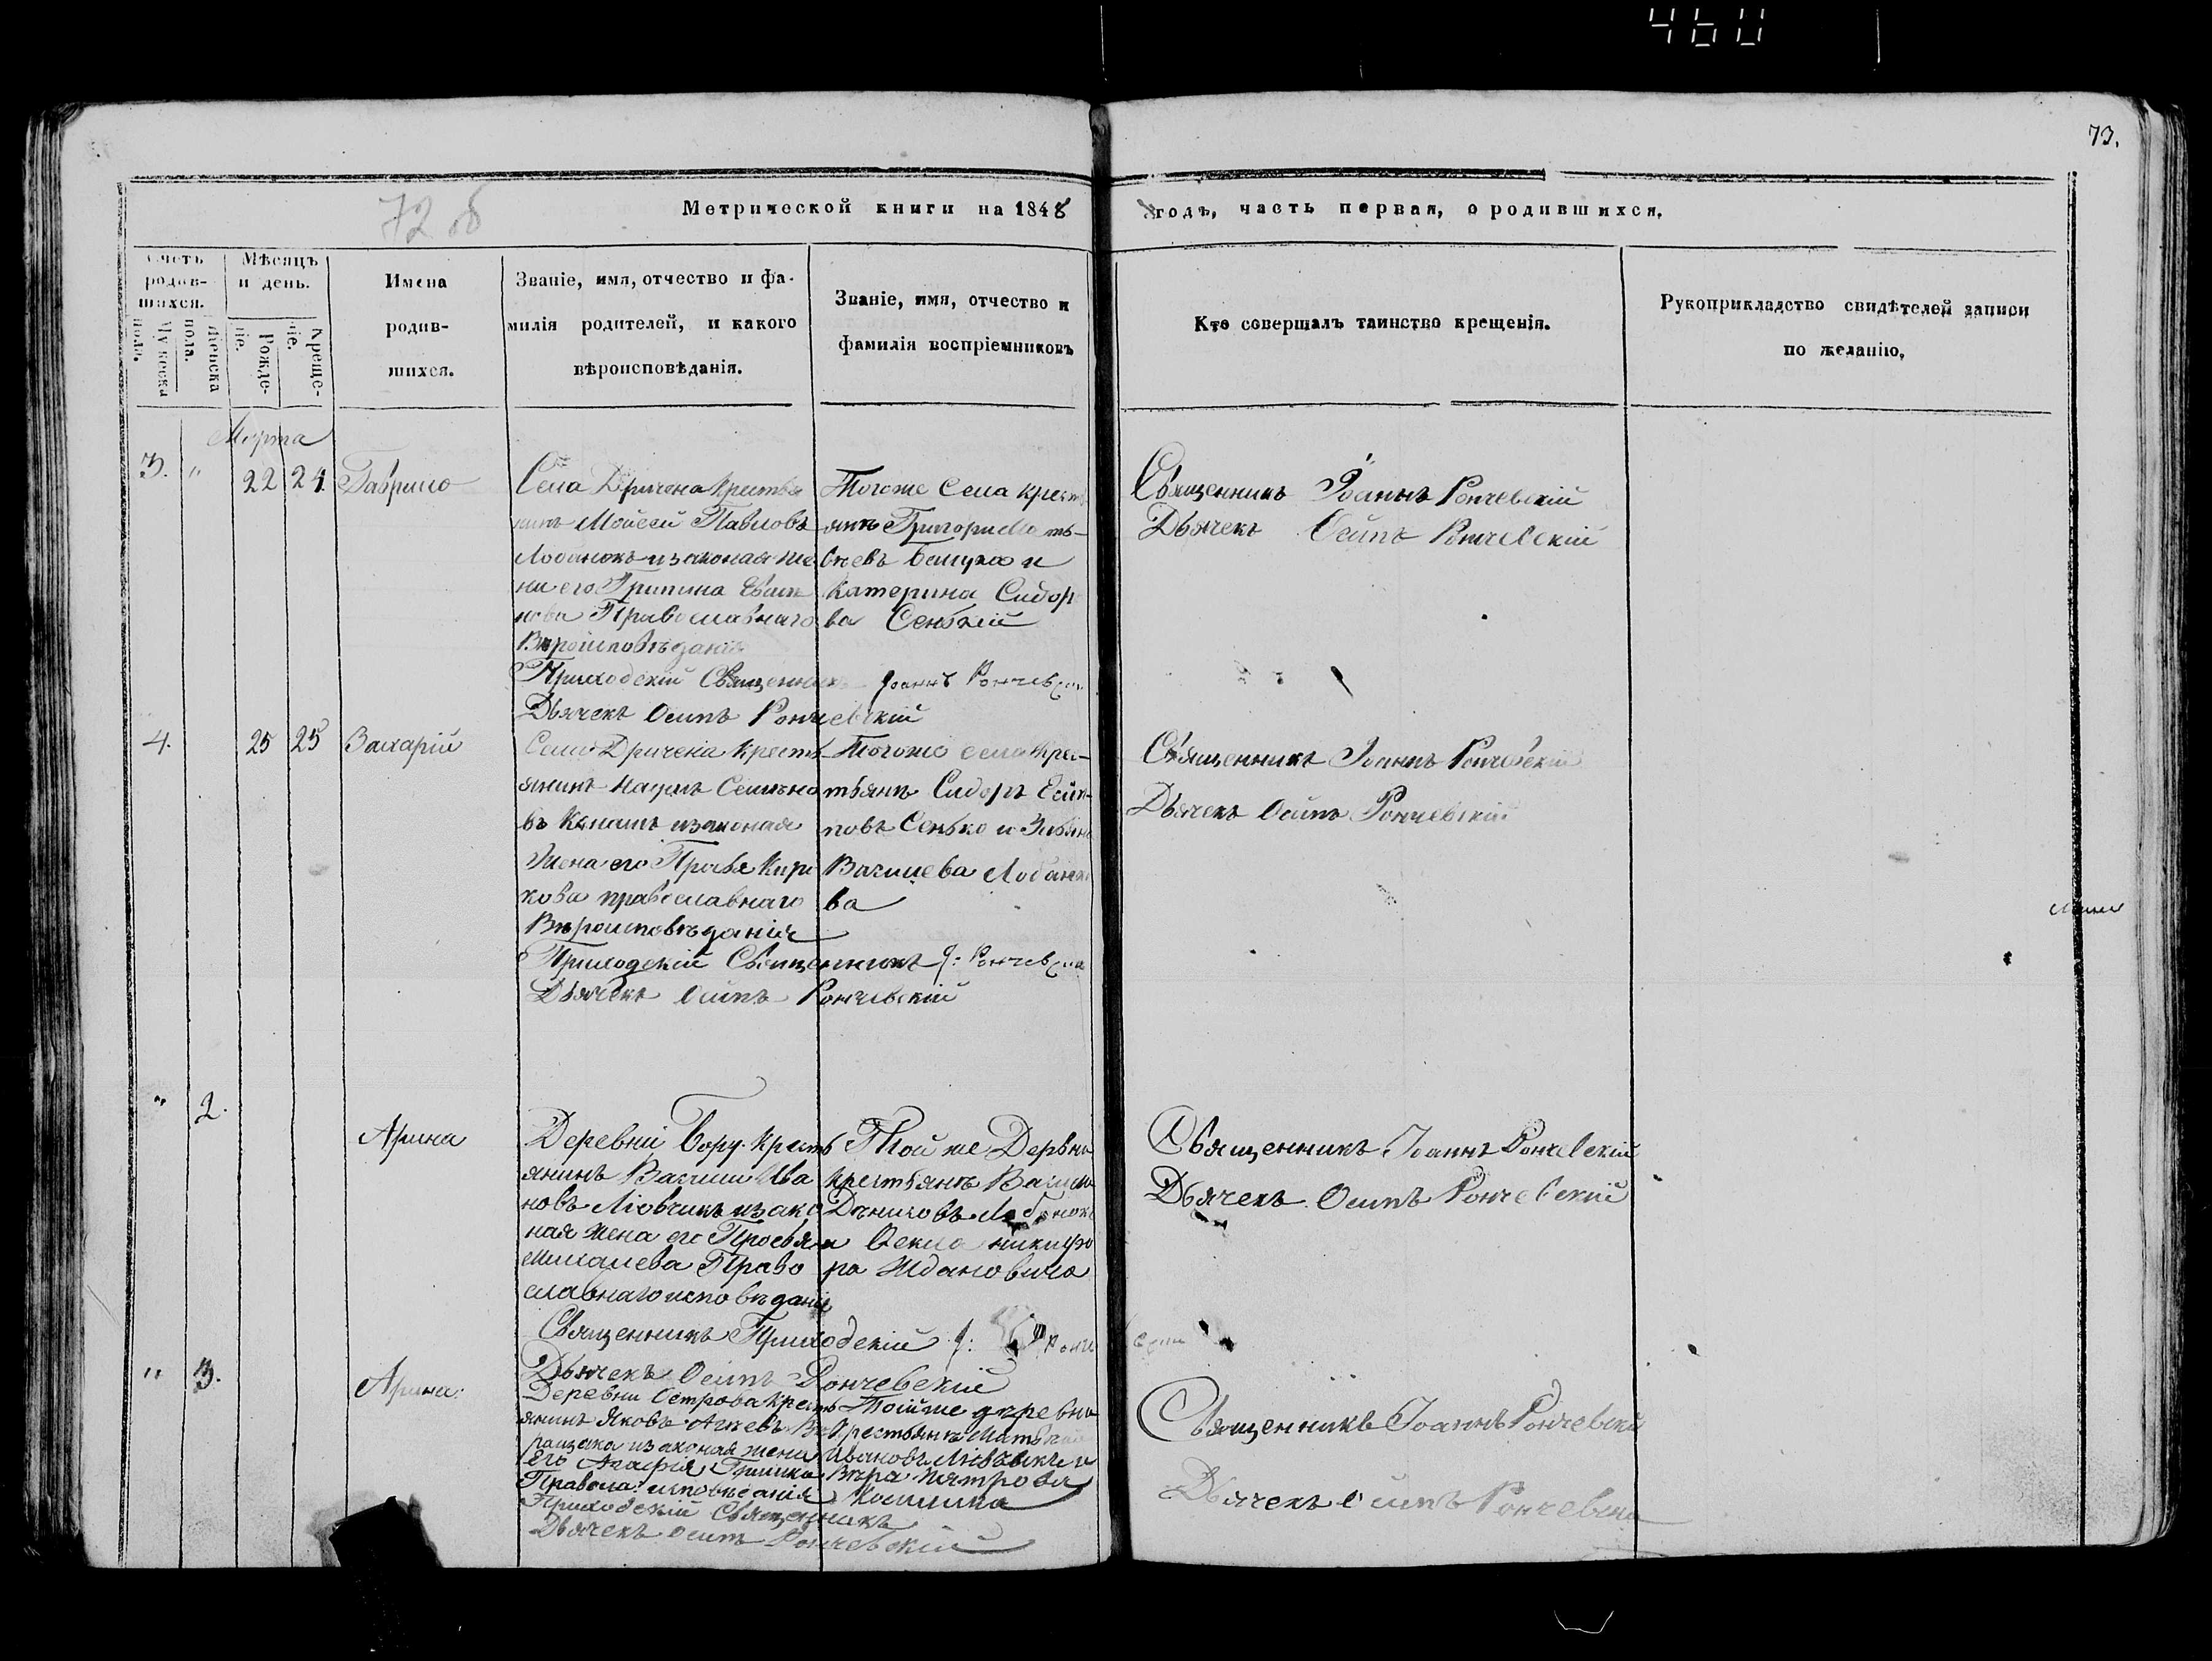 460
73.
72 об
Метрической книги на 1848 годъ, часть первая, о родившихся.
Счетъ родив-шихся.
Мужеска пола.
Женска пола.
Мѣсяцъ и день.
Рожде-ніе.
Креще-ніе.
Имена
родив-
шихся.
Званіе, имя, отчество и фа-
милія родителей, и какого
вѣроисповѣданія.
Званіе, имя, отчество и
фамилія воспріемниковъ
Кто совершалъ таинство крещенія.
Рукоприкладство свидѣтелей записи
по желанію,
Марта
3. " 22 24 Гаврило
Села Дричена Крестья
нинъ Мойсей Павловъ
Лобанокъ изаконая же
на его Грипина
нова Православнаго
Вѣроисповѣданія
Приходскій Священникъ Іоаннъ Рончевскій
Дьячекъ Осипъ Рончевскій
Тогоже Села крест
янъ Григорий Мат-
веевъ и
Катерина Сидор
ва
Священникъ Іоаннъ Рончевскій
Дьячекъ Осипъ Рончевскій
4. 25 25 Захарій
Села Дричена Кресть-
янинъ Наумъ Семѣно
въ изаконая
Жена его
кова православнаго
Вѣроисповѣданія
Приходскій Священникъ І: Рончевскій
Дьячекъ Осипъ Рончевскій
Тогоже села Крес-
тьянъ Сидоръ Есип-
повъ Сенько и
Василева Лобанко
ва
Священникъ Іоаннъ Рончевскій
Дьячекъ Осипъ Рончевскій
" 2.
Арина
Деревни Бору Кресть
янинъ Васили Ива
новъ Ліовчикъ изако
ная Жена его Просвя
Михалева Право
славнаго исповѣданія
Священникъ Приходскій І: Рончевскій
Дьячекъ Осипъ Рончевскій
Той же Деревни
крестьянъ Васили
Даниловъ Лобанокъ
и Фекла никифо
ра Ждановича
Священникъ Іоаннъ Рончевскій
Дьячекъ Осипъ Рончевскій
" 3.
Арина:
Деревни Острова Кресть
янинъ Яковъ
изаконая жена
Его Агафія
Правосла: исповѣданія
Приходскій Священникъ
Дьячекъ осипъ Рончевскій
Тойже деревни
Крестьянъ Матвей
Ивановъ Ліовчикъ и
Вѣра Пятрова
Священникъ Іоаннъ Рончевскій
Дьячекъ Осипъ Рончевскій